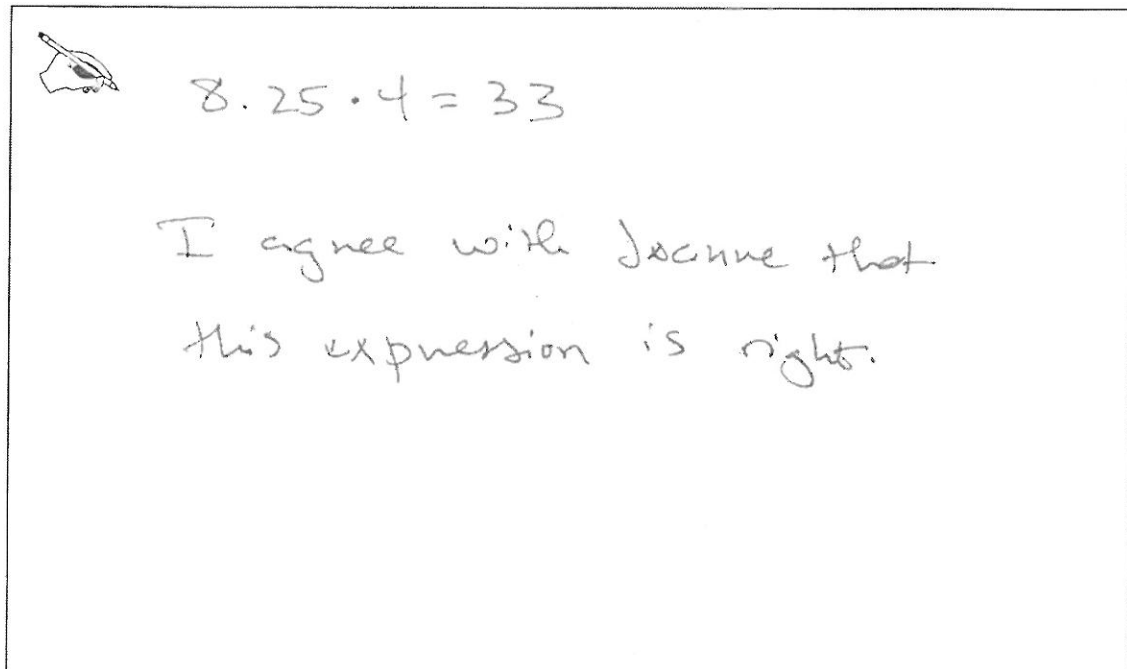 8.25 · 4 = 33
I agree with Joanne that
this expression is right.